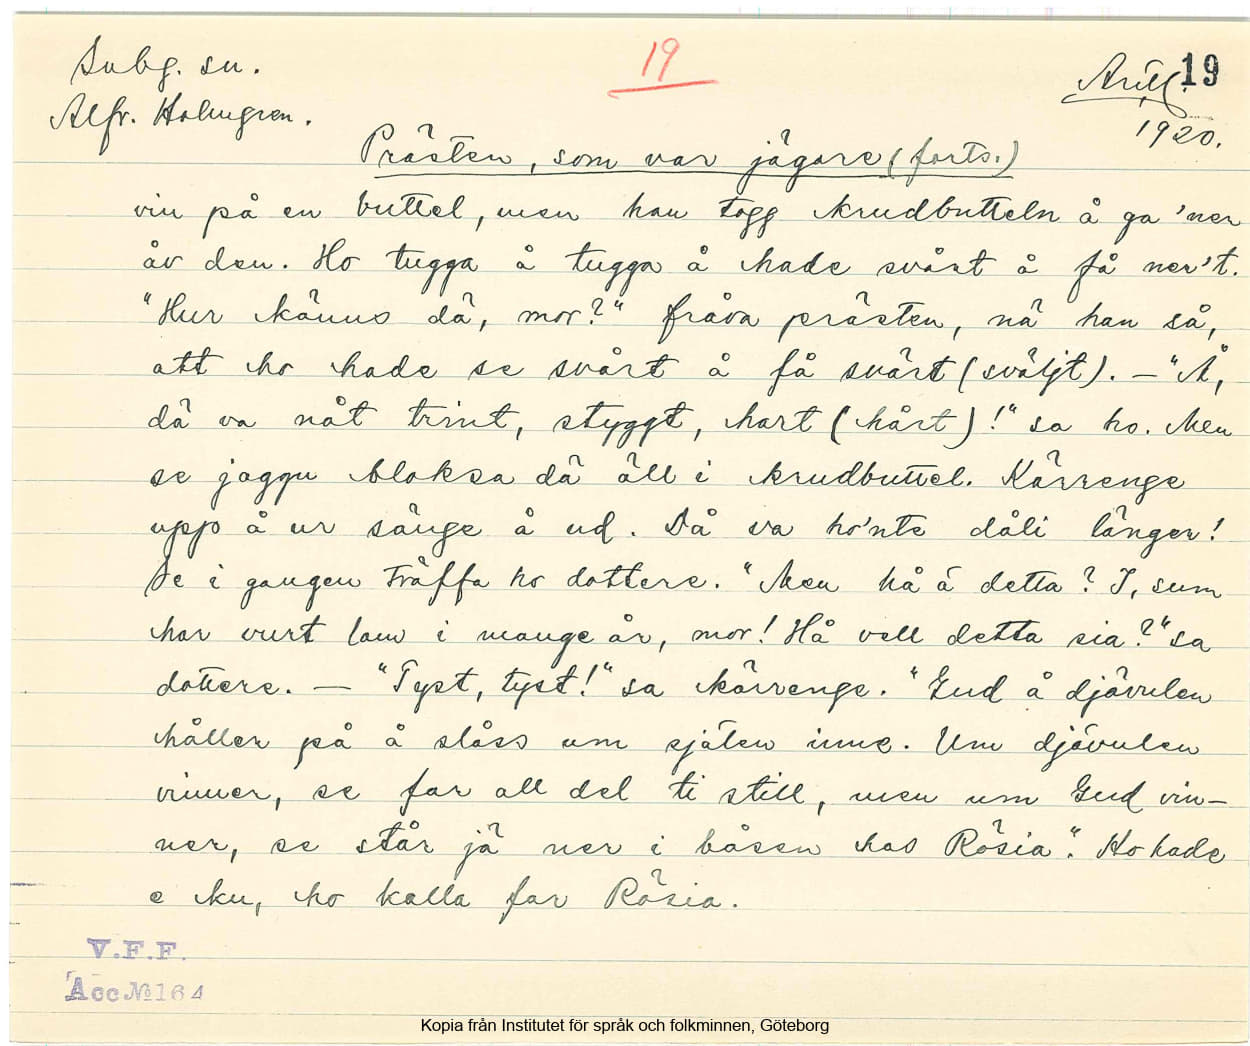 Svbg. sn.
19
Aull. 19
Alfr. Holmgren.
1920.
Prästen, som var jägare (forts.)
vin på en buttel, men han togg krudbutteln å ga 'ner
åv den. Ho tugga å tugga å hade svårt å få ner't.
"Hur känns dä, mor?" fråva prästen, nä han så,
att ho hade se svårt å få svärt (sväljt). — "Å,
dä va nåt trint, styggt, hart (hårt)!" sa ho. Men
se jaggu bloksa dä äll i krudbuttel. Kärrenge
upp å ur sänge å ud. Då va ho'nte dåli länger!
Se i gangen träffa ho dottere. "Men hå ä detta? I, sum
har vurt lam i mange år, mor! Hå vell detta sia?" sa
dottere. — "Tyst, tyst!" sa kärrenge. "Gud å djävulen
håller på å slåss um själen inne. Um djävulen
vinner, se far all del ti still, men um Gud vin-
ner, se står jä ner i båsen hos Rösia". Ho hade
e ku, ho kalla för Rösia.
V.F.F.
Acc №164
Kopia från Institutet för språk och folkminnen, Göteborg